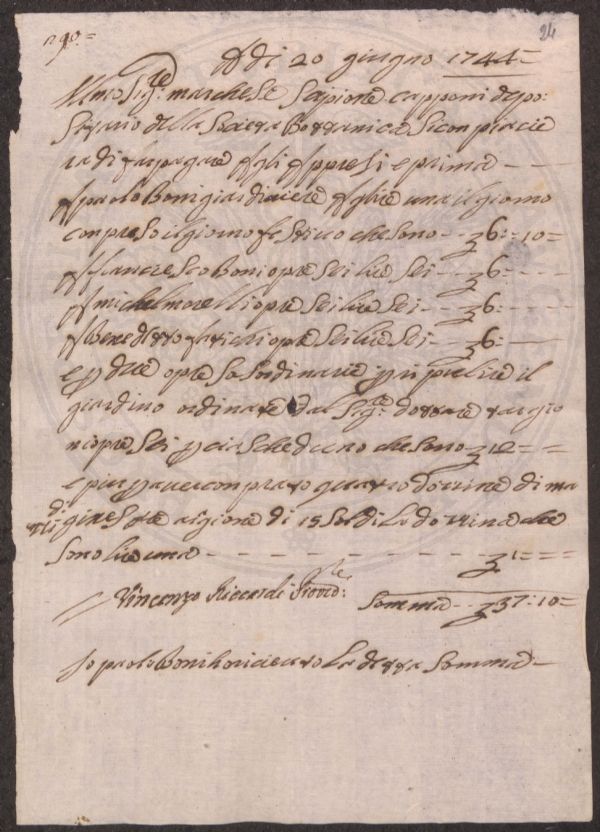 n 90.=
24
A di 20 giugno 1744=
Ill.mo Sig.re marchese Scipione capponi depo:
Sitario della Società Bottanica Si conpiacie
rà di far pagare Agli Appresi e prima
A paolo Boni giardiniere A lire una il giorno
conpreso il giorno festivo che sono - - 6:-10=
A francesco Boni opre Sei lire Sei - - 6:
A michel morelli opre Sei lire Sei - - 6:
A Benedetto opre Sei lire Sei - - 6:
e p due opre Sordinarie p ripulire il
giardino ordinate dal Sig.re dottore targio
ni opre Sei p ciascheduno che sono 12=
e piu p aver conprato quattro dozzine di ma
di
gire Sette a ragione di 15 Soldi La dozzina che
Sono lire una - - - - - - - 1=
Vincenzo Riccardi Somma - - 37:10=
Io paolo Boni ho riceuto La detta Somma